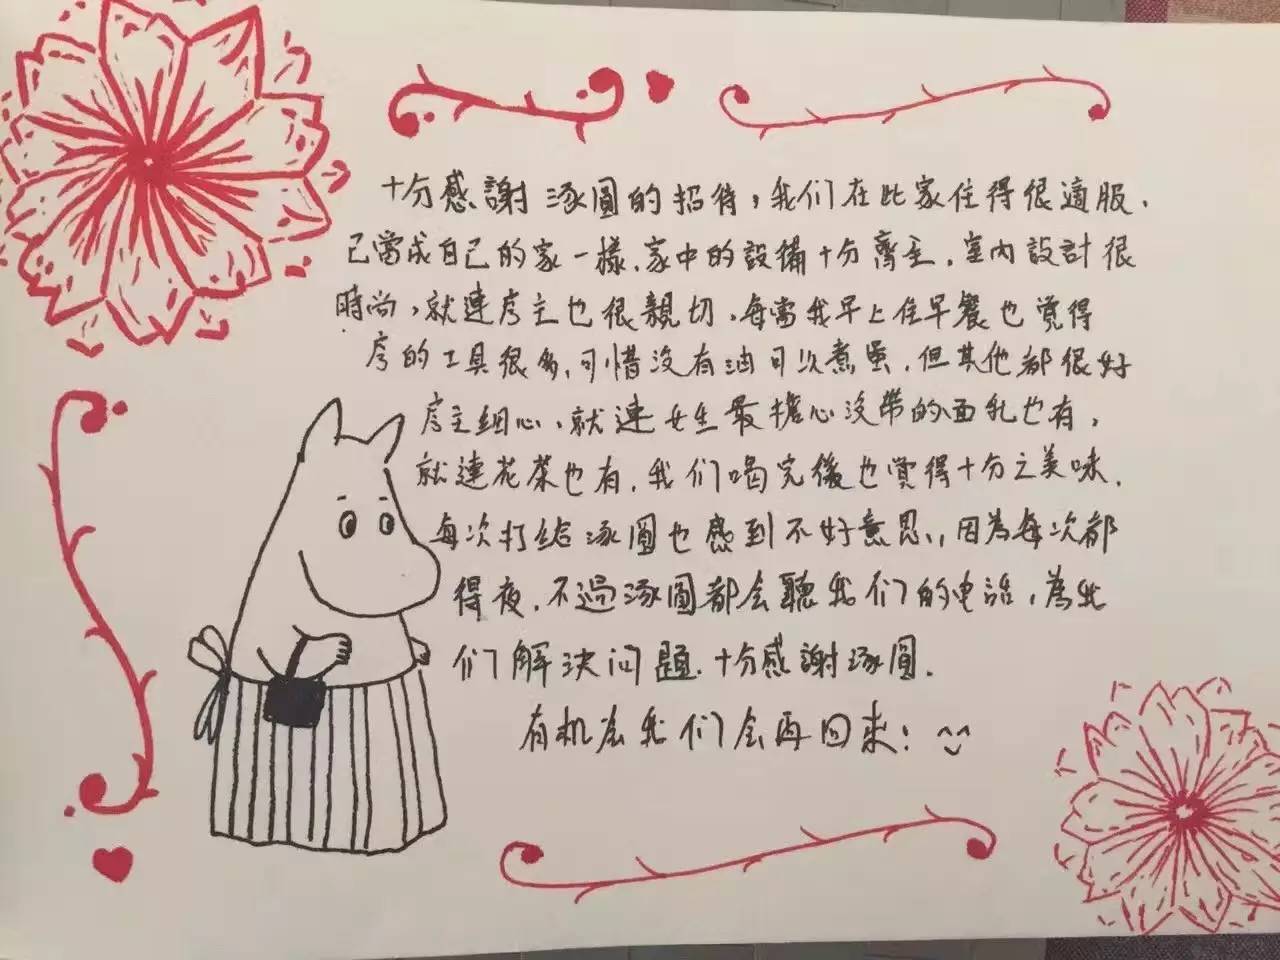 十分感謝涿圓的招待，我们在此家住得很適服.
已當成自己的家一樣.家中的設備十分齊全.室内設計很
時尚，就連房主也很親切.每當我早上住早餐也覺得
房的工具很多,可惜没有油可以煮蛋.但其他都很好
房主細心、就連女生最擔心没帶的面乳也有，
就連花茶也有.我们喝完後也覺得十分之美味.
每次打给涿圓也感到不好意思，因為每次都
得夜.不過涿圓都会聽我们的电話，為我
们解决问題.十分感謝涿圓.
有机会我们会再回来！